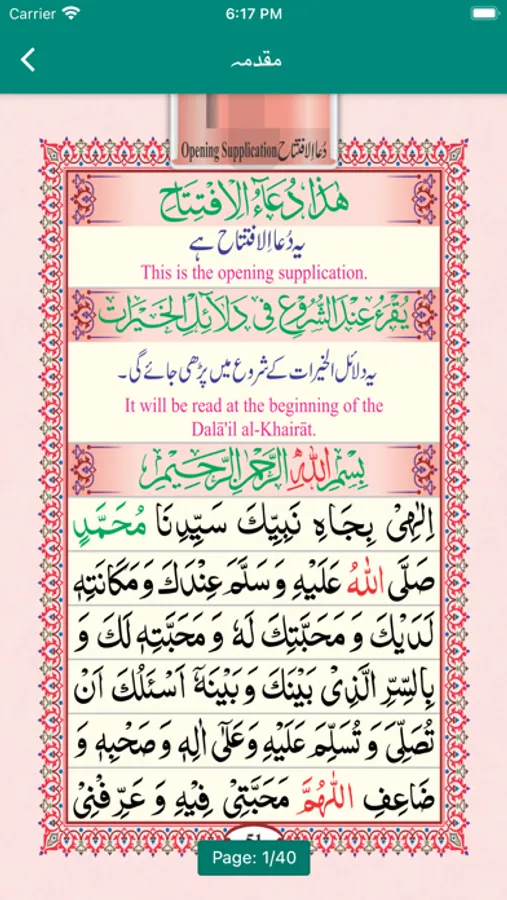 Carrier 6:17 PM
مقدمہ
Opening Supplication دُعاءِ الافتتاح
هٰذَا دُعَآءُ الْاِفْتِتَاحِ
یہ دُعاءِ الافتتاح ہے
This is the opening supplication.
يُقْرَءُ عِنْدَ الشُّرُوْعِ فِيْ دَلَآئِلِ الْخَيْرَاتِ
یہ دلائل الخیرات کے شروع میں پڑھی جائے گی۔
It will be read at the beginning of the
Dalā'il al-Khairāt.
بِسْمِ اللهِ الرَّحْمٰنِ الرَّحِيْمِ
اِلٰهِيْ بِجَاهِ نَبِيِّكَ سَيِّدِنَا مُحَمَّدٍ
صَلَّى اللهُ عَلَيْهِ وَسَلَّمَ عِنْدَكَ وَمَكَانَتِهٖ
لَدَيْكَ وَ مَحَبَّتِكَ لَهٗ وَ مَحَبَّتِهٖ لَكَ وَ
بِالسِّرِّ الَّذِيْ بَيْنَكَ وَبَيْنَهٗٓ اَسْئَلُكَ اَنْ
تُصَلِّيَ وَ تُسَلِّمَ عَلَيْهِ وَعَلٰٓى اٰلِهٖ وَ صَحْبِهٖ وَ
ضَاعِفِ اللّٰهُمَّ مَحَبَّتِيْ فِيْهِ وَ عَرِّفْنِيْ
51
Page: 1/40